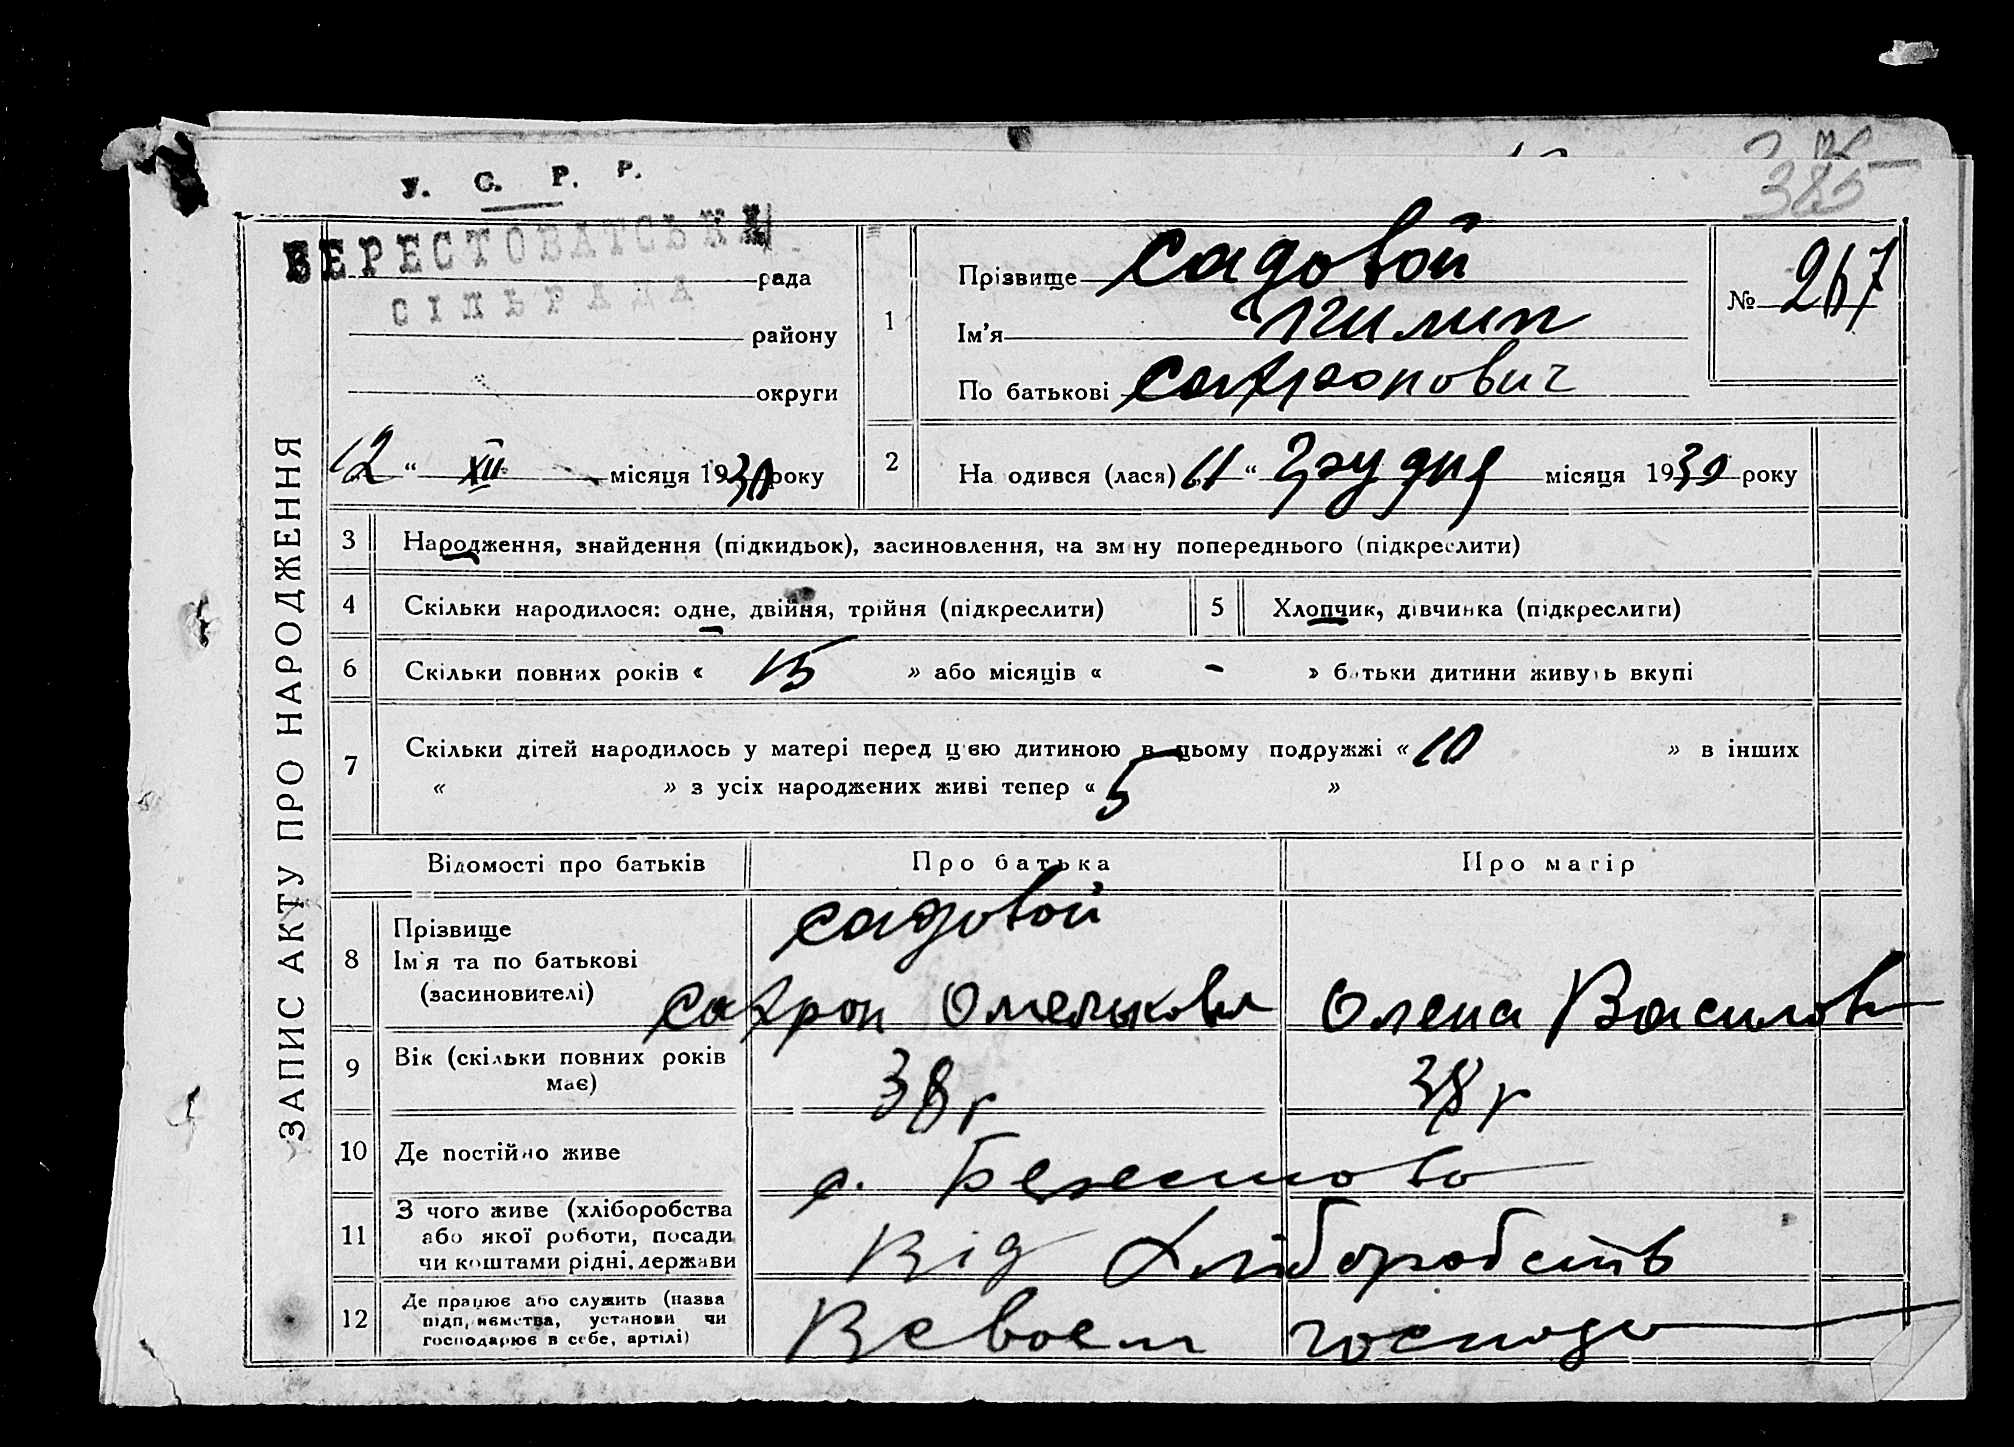 385
У. С. Р. Р.
ЗАПИС АКТУ ПРО НАРОДЖЕННЯ
БЕРЕСТОВАТСЬКА рада
СІЛЬРАДА
району
округи
12 " XII місяця 1930 року
1 Прізвище Садовой
Ім'я Пилип
По батькові Сафронович
№ 267
2 На одився (лася) 11 " Грудня місяця 1930 року
3 Народження, знайдення (підкидьок), засиновлення, на зм ну попереднього (підкреслити)
4 Скільки народилося: одне, двійня, трійня (підкреслити)
5 Хлопчик, дівчинка (підкреслити)
6 Скільки повних років « 15 » або місяців « - » батьки дитини живуть вкупі
7 Скільки дітей народилось у матері перед цією дитиною в цьому подружжі « 10 » в інших
« » з усіх народжених живі тепер « 5 »
Відомості про батьків Про батька Про матір
8 Прізвище Садовой
Ім'я та по батькові
(засиновителі) Сафрон Омельков Олена Василов
9 Вік (скільки повних років
має) 38 р 38 р
10 Де постійно живе с. Берестово
11 З чого живе (хліборобства
або якої роботи, посади
чи коштами рідні, держави Від Хліборобств
12 Де працює або служить (назва
підп, иємства, установи чи
господарює в себе, артілі) В своем господа